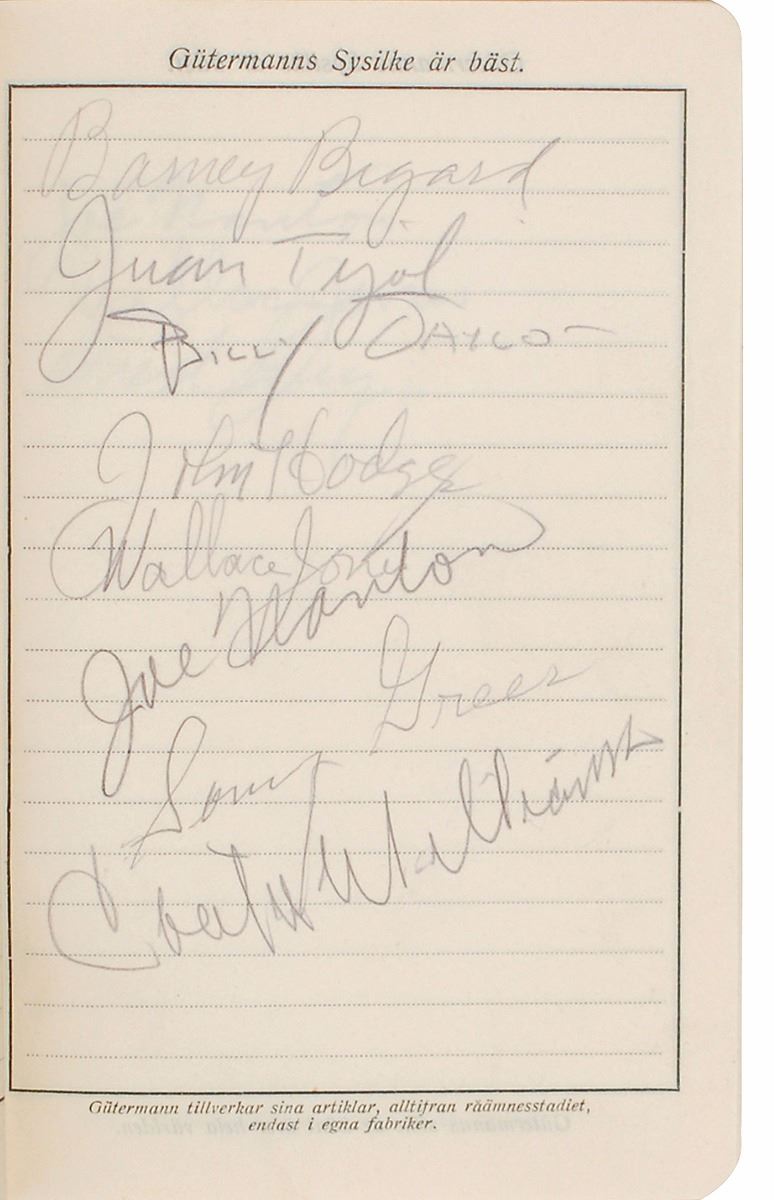 Gütermanns Sysilke är bäst.
Barney Bigard
Juan Tizol
Billy Taylor
John Hodges
Wallace Jones
Joe Nanton
Sonny Greer
Cootie Williams
Gütermann tillverkar sina artiklar, alltifran råämnesstadiet,
endast i egna fabriker.